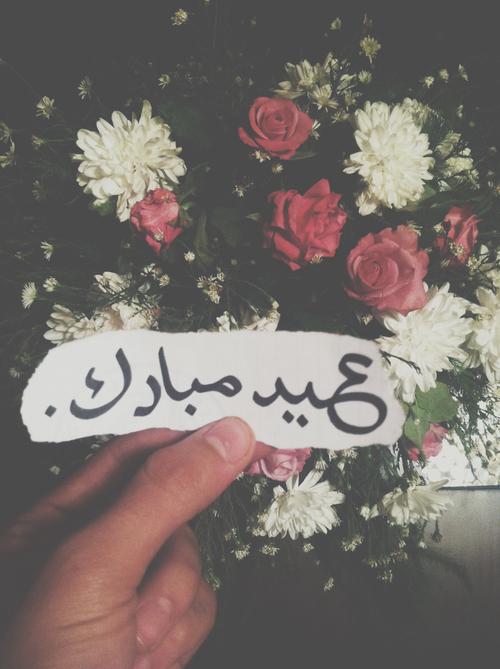 عيد مبارك.